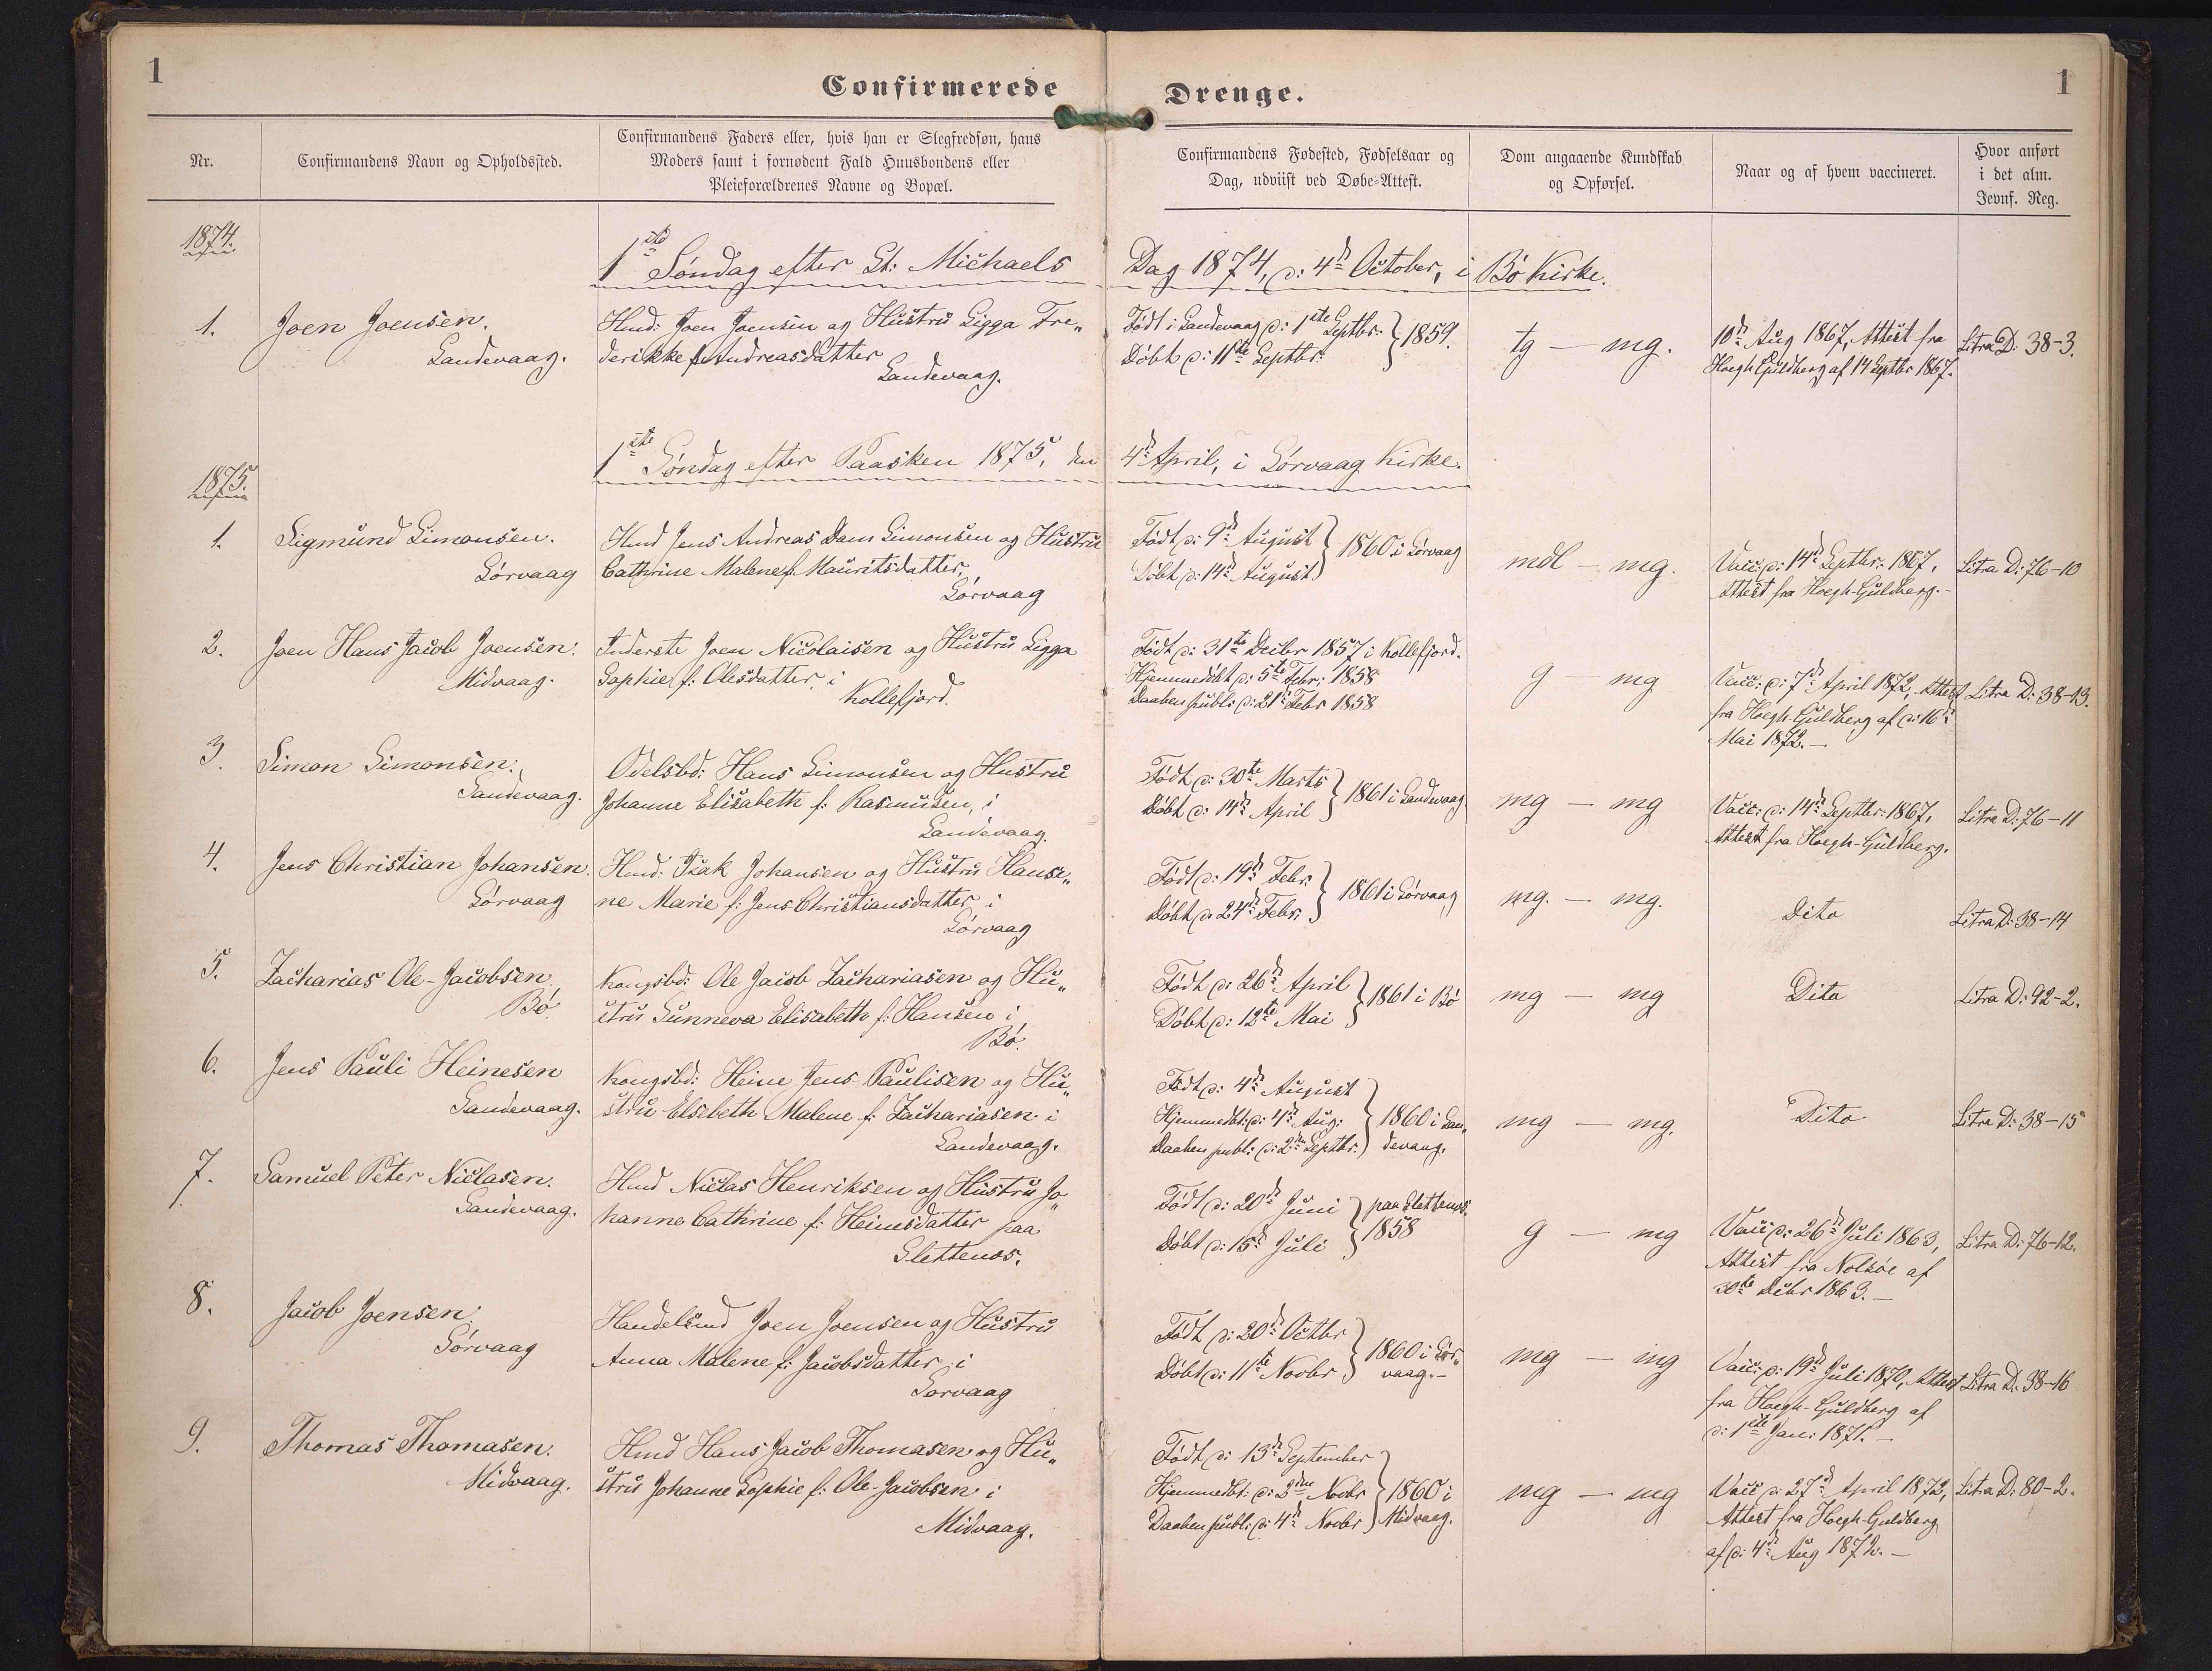 1
Confirmerede
Drenge.
1
Nr.
Confirmandens Navn og Opholdssted.
Confirmandens Faders eller, hvis han er Slegfredsøn, hans
Moders samt i fornødent Fald Huusbondens eller
Pleieforældrenes Navne og Bopæl.
Confirmandens Fødested, Fødselsaar og
Dag, udviist ved Døbe-Attest.
Dom angaaende Kundskab
og Opførsel.
Naar og af hvem vaccineret.
Hvor anført
i det alm.
Jevnf. Reg.
1874.
1ste Søndag efter St: Michaels Dag 1874, d: 4d October, i Bø Kirke.
1.
Joen Joensen.
Sandevaag.
Hmd: Joen Joensen og Hustru Sigga Fre„
derikke f. Andreasdatter
Sandevaag.
Født i Sandevaag d: 1ste Septbr.
Døbt d: 11te Septbr:
1859.
tg — mg.
10d Aug 1867, Attest fra
Hoegh Guldberg af 14 Septbr 1867.
Litra D: 38-3.
1ste Søndag efter Paasken 1875, den 4d April, i Sørvaag Kirke.
1875.
1.
Sigmund Simonsen.
Sørvaag
Hmd Jens Andreas Dam Simonsen og Hustru
Cathrine Malene f. Mauritsdatter,
Sørvaag
Født d: 9d August
Døbt d: 14d August
1860 i Sørvaag
mdl — mg.
Vacc: d: 14d Septbr: 1867,
Attest fra Hoegh-Guldberg.-
Litra D: 76-10
2.
Joen Hans Jacob Joensen.
Midvaag.
Inderste Joen Nicolaisen og Hustru Sigga
Sophie f: Olesdatter, i
Kollefjord.
Født d: 31te Decbr 1857 i Kollefjord.
Hjemmedøbt d: 5te Febr: 1858
Daaben publ: d: 21d Febr 1858
g — mg
Vacc: d: 7d April 1872, Attest
fra Hoegh-Guldberg af d: 16d
Mai 1872.—
Litra D: 38-13.
3.
Simon Simonsen.
Sandevaag.
Odelsbd: Hans Simonsen og Hustru
Johanne Elisabeth f: Rasmussen, i
Sandevaag.
Født d: 30te Marts
Døbt d: 14d April
1861 i Sandevaag.
mg — mg
Vacc: d: 14d Septbr: 1867,
Attest fra Hoegh-Guldberg.
Litra D: 76-11
4.
Jens Christian Johansen.
Sørvaag
Hmd: Isak Johansen og Hustru Hanse„
ne Marie f: Jens Christiansdatter i
Sørvaag
Født d: 19d Febr:
Døbt d: 24d Febr:
1861 i Sørvaag
mg. — mg.
Dito
Litra D: 38-14
5.
Zacharias Ole-Jacobsen
Bø.
Kongsbd: Ole Jacob Zachariasen og Hu„
stru Sunneva Elisabeth f: Hansen i
Bø.
Født d: 26d April
Døbt d: 12te Mai
1861 i Bø
mg — mg
Dito
Litra D: 92-2.
6.
Jens Pauli Heinesen
Sandevaag.
Kongsbd: Heine Jens Paulisen og Hu„
stru Elsebeth Malene f: Zachariasen i
Sandevaag.
Født d: 4d August
Hjemmedbt: d: 4d Aug:
Daaben publ: d: 2den Septbr:
1860 i San„
devaag.
mg — mg.
Dito
Litra D: 38-15
7.
Samuel Peter Niclasen.
Sandevaag.
Hmd Niclas Henriksen og Hustru Jo„
hanne Cathrine f: Heinesdatter paa
Slettenæs.
Født d: 20d Juni
Døbt d: 15d Juli
paa Slettenæs.
1858
g — mg
Vacc d: 26d Juli 1863,
Attest fra Nolsøe af
30te Decbr 1863.—
Litra D: 76-12.
8.
Jacob Joensen.
Sørvaag
Handelsmd Joen Joensen og Hustru
Anna Malene f: Jacobsdatter, i
Sørvaag
Født d: 20d Octbr
Døbt d: 11te Novbr
1860 i Sør„
vaag.-
mg — mg
Vacc: d: 19d Juli 1870, Attest
fra Hoegh-Guldberg af
d: 1ste Jan: 1871.—
Litra D: 38-16
9.
Thomas Thomasen.
Midvaag.
Hmd Hans Jacob Thomasen og Hu„
stru Johanne Sophie f: Ole-Jacobsen i
Midvaag.
Født d: 13d September
Hjemmedbt: d: 2den Novbr
Daaben publ: d: 4d Novbr
1860 i
Midvaag.
mg — mg
Vacc d: 27d April 1872,
Attest fra Hoegh-Guldberg
af d: 4d Aug 1872.—
Litra D: 80-2.